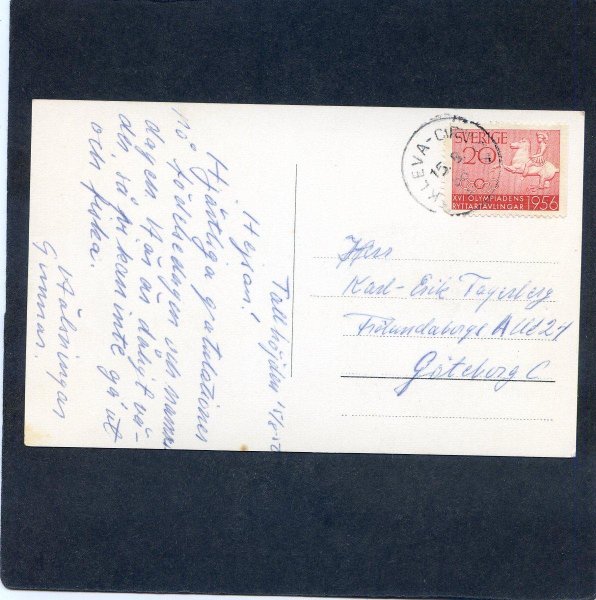 Tallhöjden 15/8-56
Hejsan!
Hjärtliga gratulationer
på födelsedagen och namns-
dagen. Här är dåligt vä-
der, så vi kan inte gå ut
och fiska.
Hälsningar
Gunnar.
SVERIGE
20
XVI OLYMPIADENS
RYTTARTÄVLINGAR 1956
Herr
Karl-Erik Tagerberg
Frölundaborgs Allé 21
Göteborg C